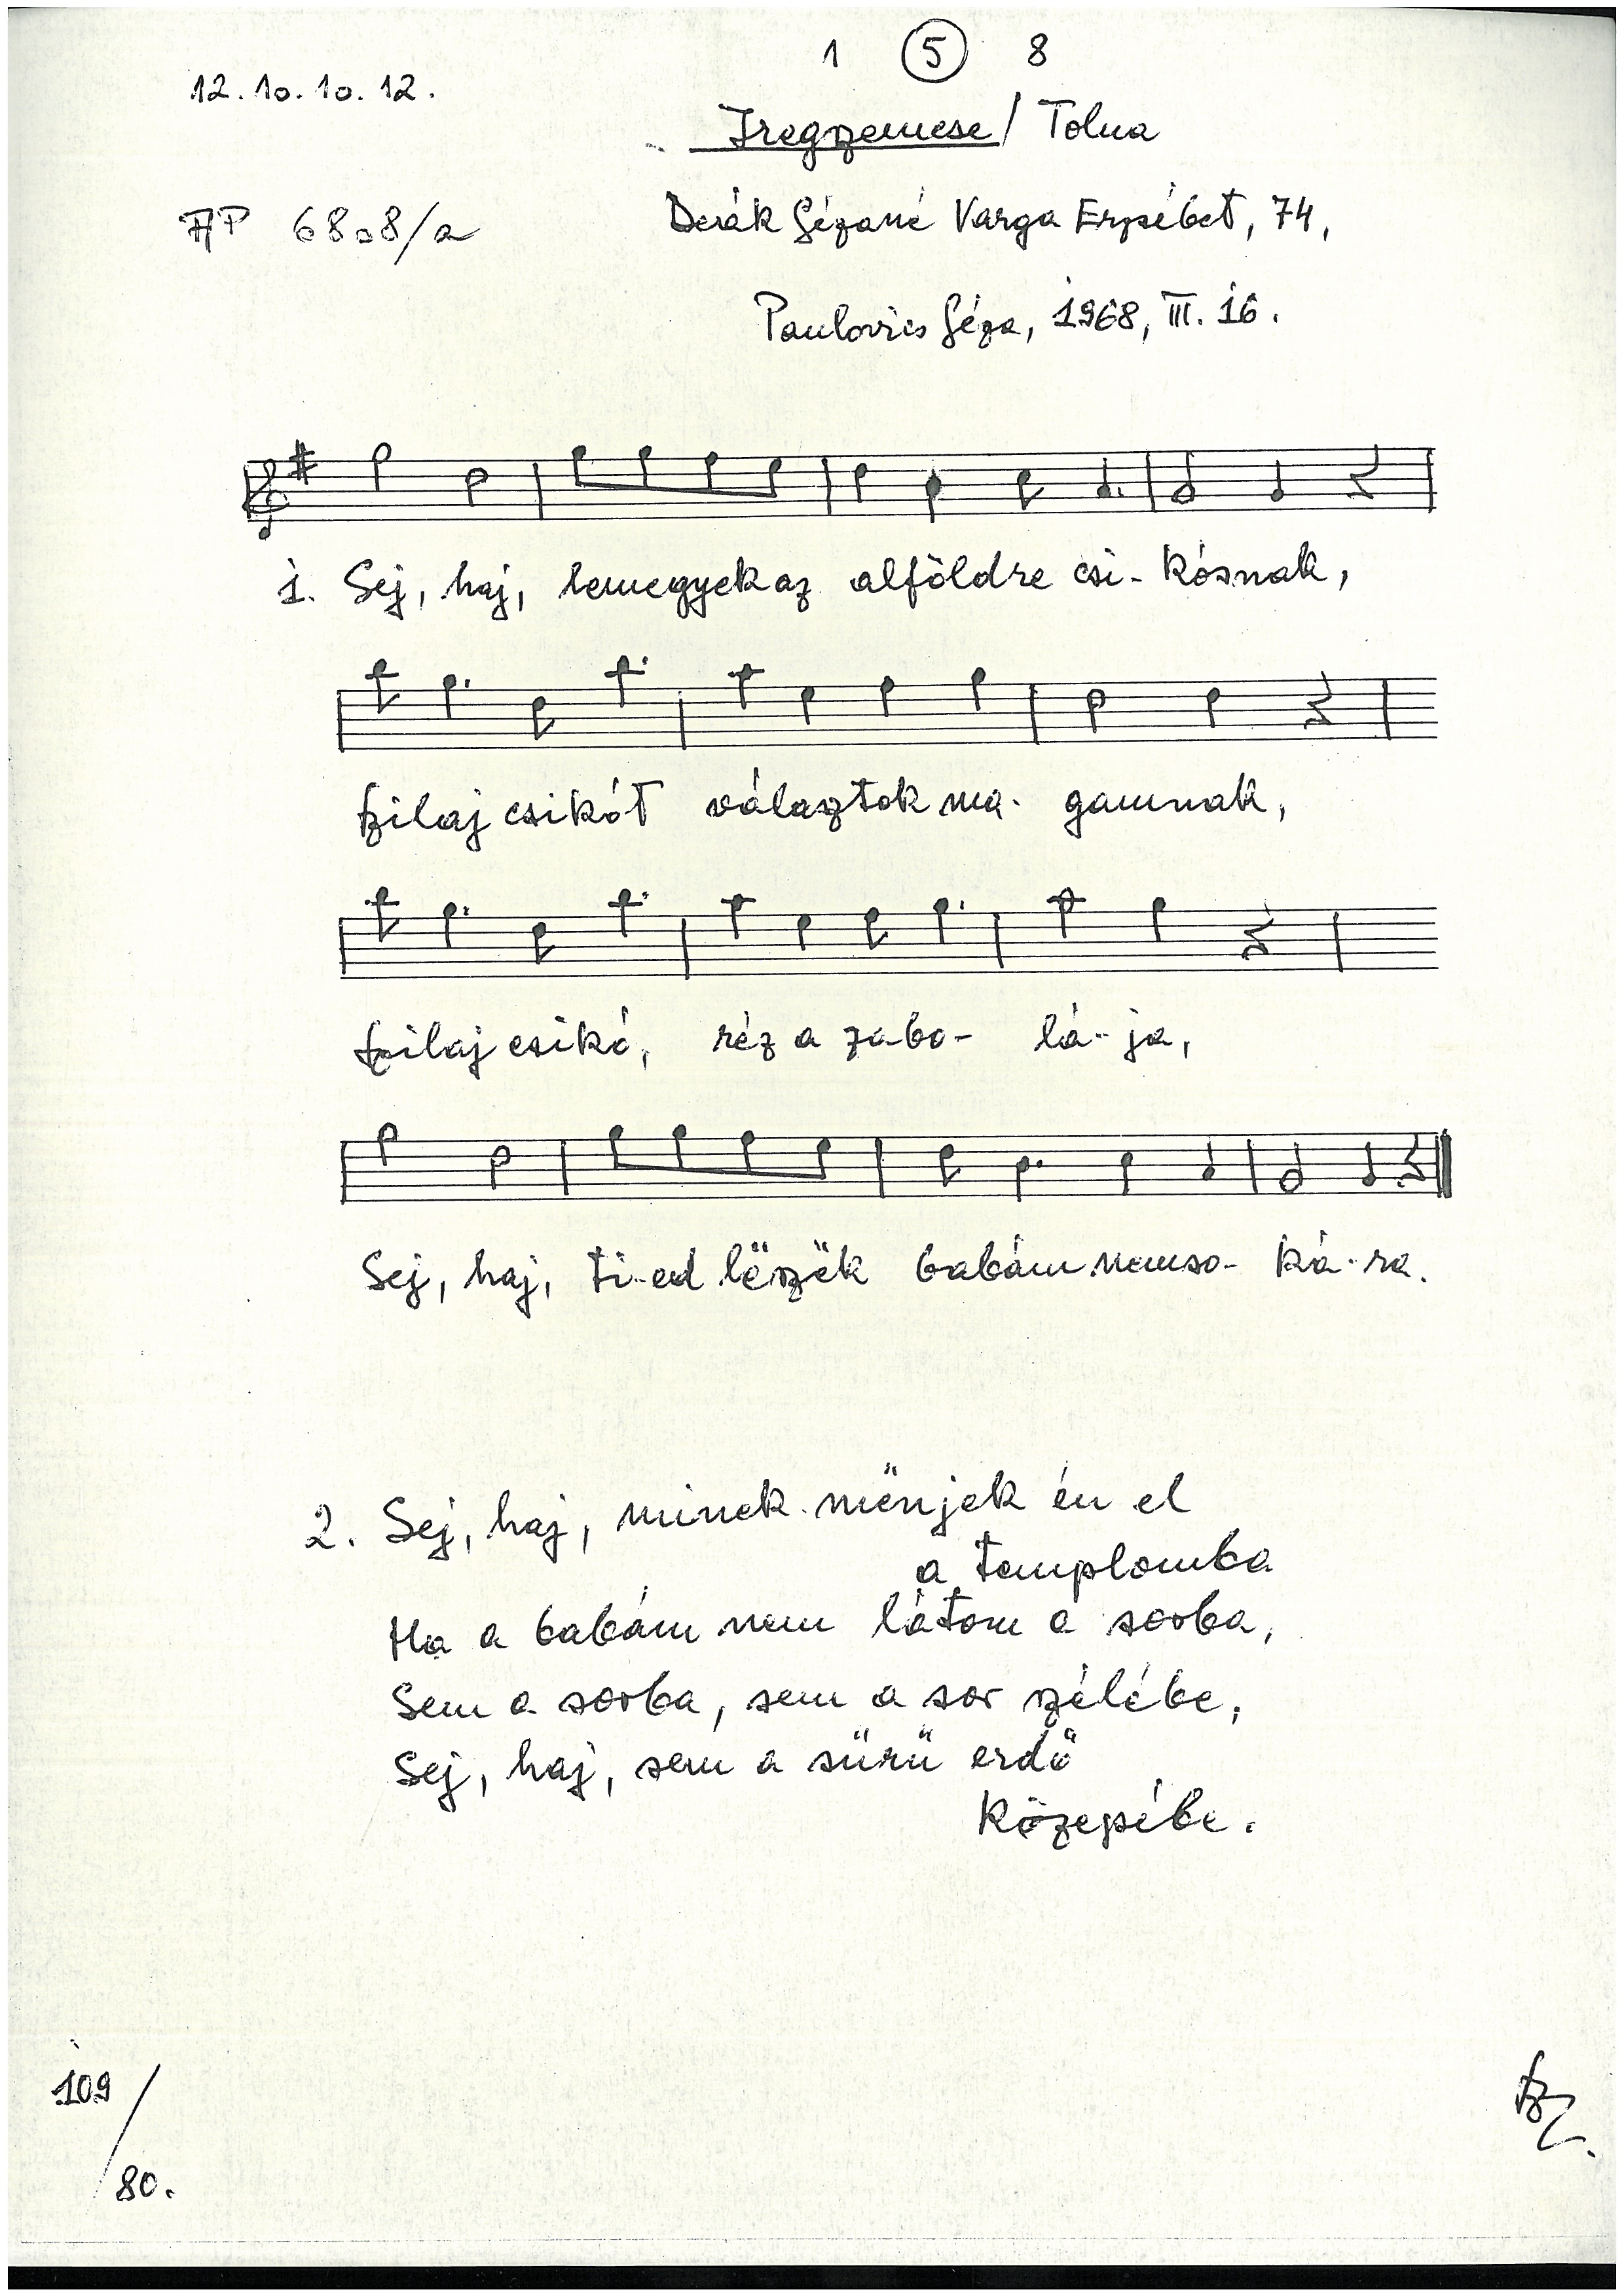 1 5 8
12. 10. 10. 12.
Iregszemcse / Tolna
AP 6808/a
Deák Gézáné Varga Erzsébet, 74,
Paulovics Géza, 1968, III. 16.
1. Sej, haj, lemegyek az alföldre csi- kósnak,
szilaj csikót választok ma- gamnak,
szilaj csikó, réz a zabo- lá- ja,
Sej, haj, ti-ed lëszëk babám nemso- ká-ra.
2. Sej, haj, minek mënjek én el
a templomba
Ha a babám nem látom a sorba,
Sem a sorba, sem a sor szélébe,
Sej, haj, sem a sürü erdö
közepébe.
109/
80.